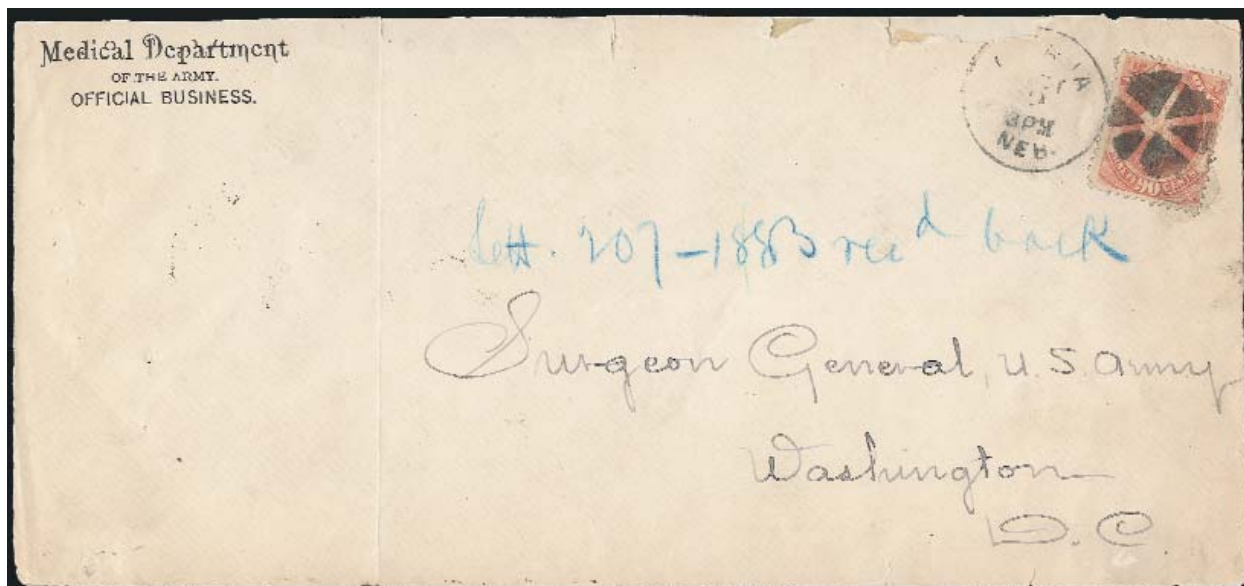 Medical Department
OF THE ARMY.
OFFICIAL BUSINESS.
3 PM
NEB.
90 CENTS
Lett. 207-1883 rec'd back
Surgeon General, U.S. Army
Washington
D.C.